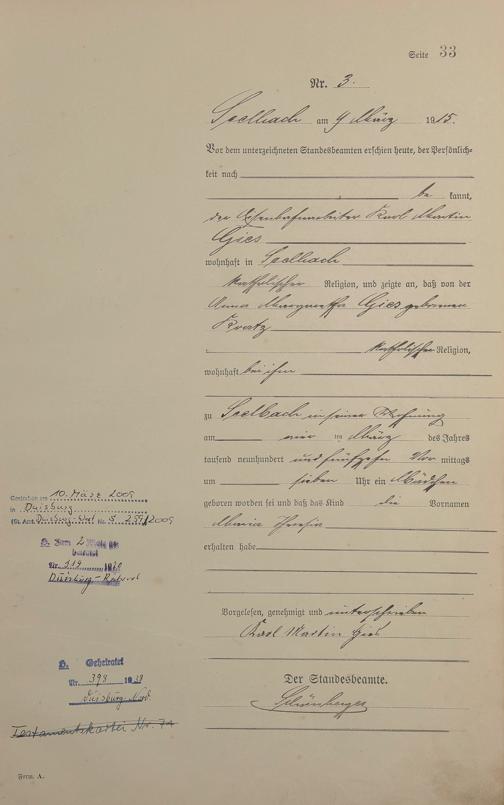 Seite 33
Nr. 3.
Seelbach am 9 März 1915.
Vor dem unterzeichneten Standesbeamten erschien heute, der Persönlich-
keit nach
be kannt,
der Eisenbahnarbeiter Karl Martin
Gies
wohnhaft in Seelbach
katholischer Religion, und zeigte an, daß von der
Anna Margaretha Gies geborenen
Kratz
katholischer Religion,
wohnhaft bei ihm
zu Seelbach in seiner Wohnung
am vier ten März des Jahres
tausend neunhundert und fünfzehn Vor mittags
um sieben Uhr ein Mädchen
geboren worden sei und daß das Kind die Vornamen
Maria
erhalten habe
Vorgelesen, genehmigt und unterschrieben
Karl Martin Gies
Der Standesbeamte.
Gestorben am 10. März 2009
in Duisburg
(St. Amt Nr. /2009
Nr. 319
Duisburg-Ruhrort
H. Geheiratet
Nr. 398 19
Duisburg Nord
Testamentskartei Nr. 74
Form. A.